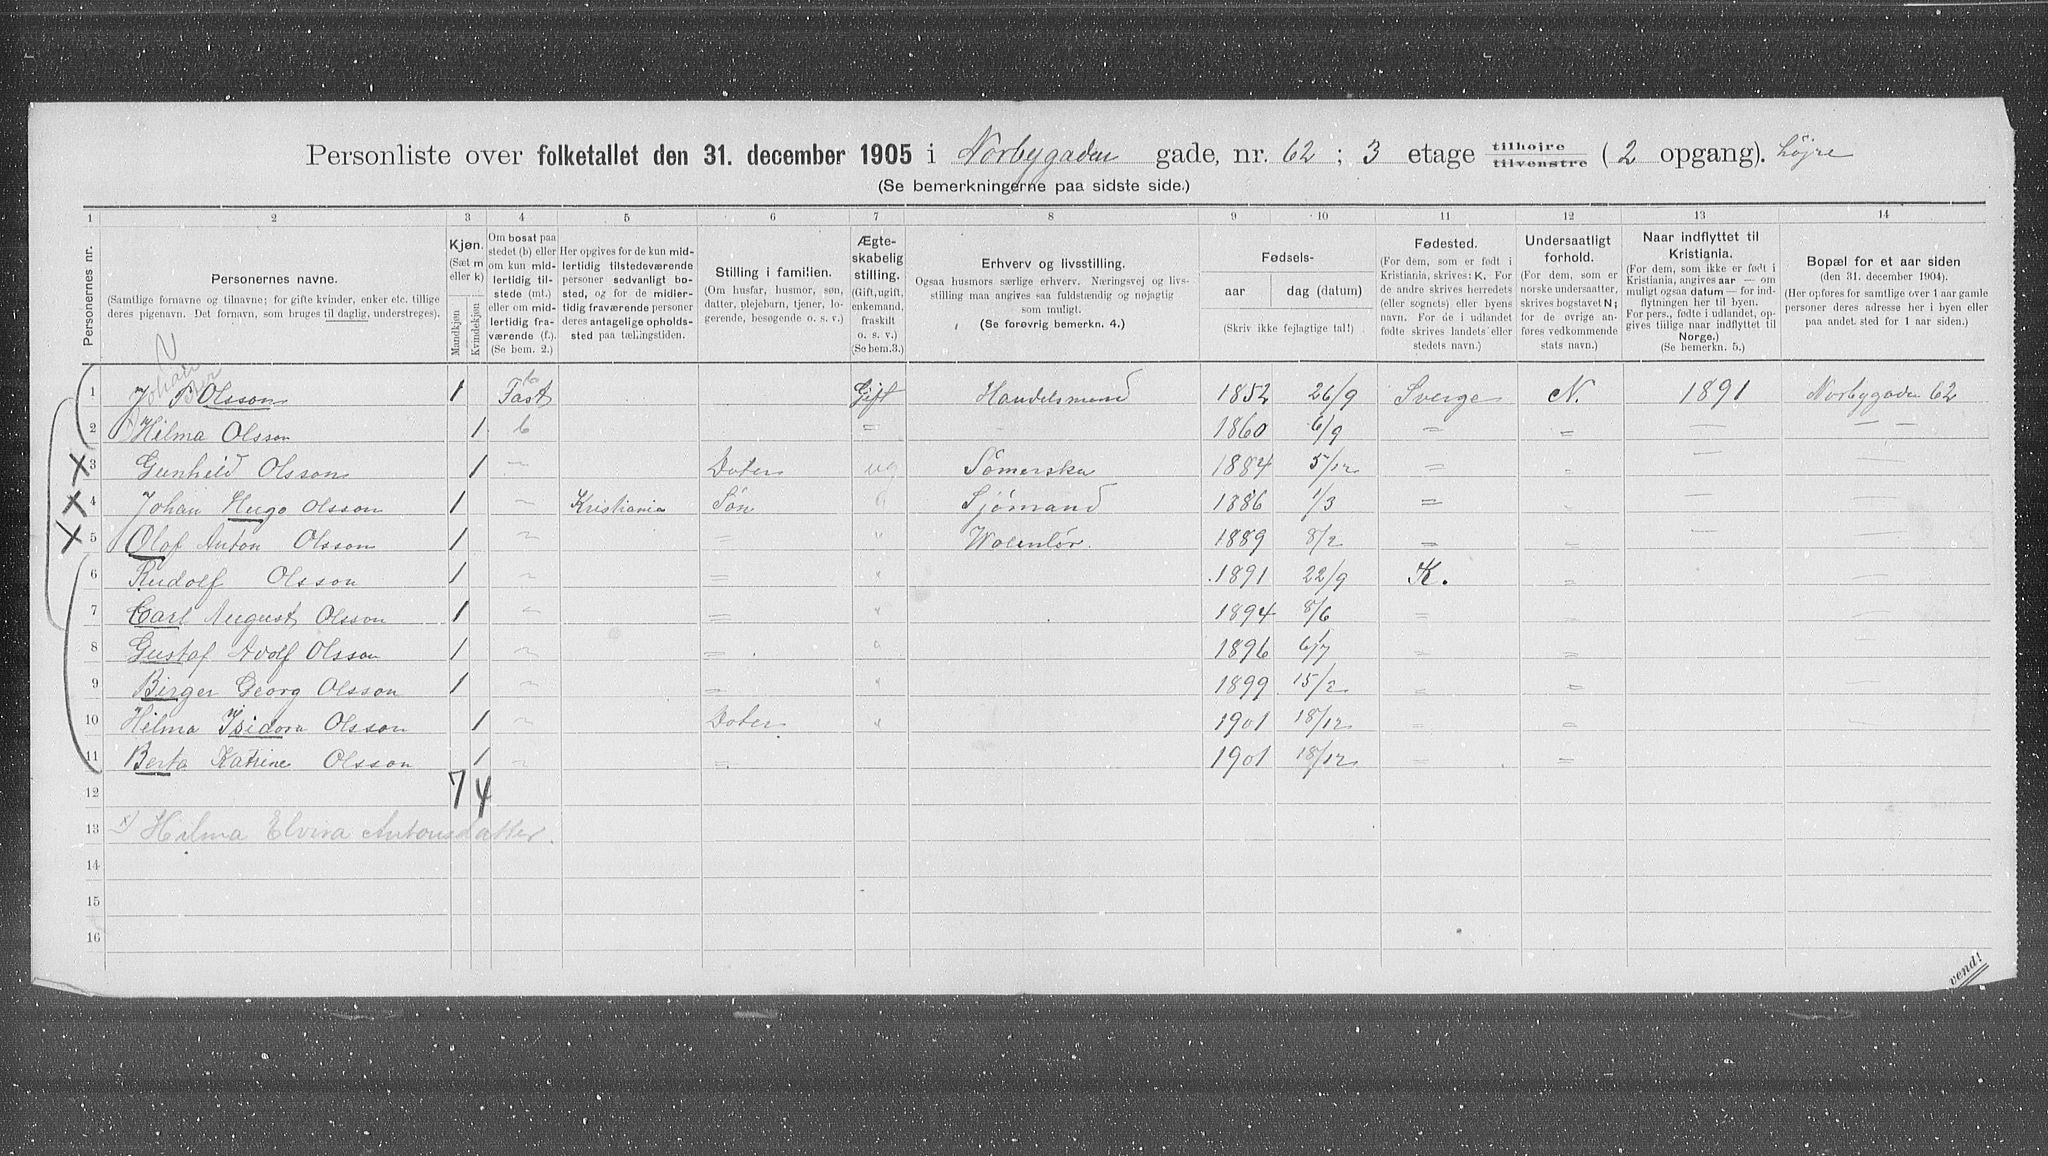 Personliste over folketallet den 31. december 1905 i Norbygaden gade, nr. 62 ; 3 etage tilhøjre tilvenstre ( 2 opgang). højre
(Se bemerkningerne paa sidste side.)
1 2 3 4 5 6 7 8 9 10 11 12 13 14
Personernes nr.
Personernes navne.
(Samtlige fornavne og tilnavne; for gifte kvinder, enker etc. tillige
deres pigenavn. Det fornavn, som bruges til daglig, understreges).
Kjøn.
(Sæt m
eller k)
Mandkjøn
Kvindekjøn
Om bosat paa
stedet (b) eller
om kun mid-
lertidig til-
stede (mt.)
eller om mid-
lertidig fra-
værende (f.).
(Se bem. 2.)
Her opgives for de kun mid-
lertidig tilstedeværende
personer sedvanlig bo-
sted, og for de midler-
tidig fraværende personer
deres antagelige opholds-
sted paa tællingstiden.
Stilling i familien.
(Om husfar, husmor, søn,
datter, plejebarn, tjener, lo-
gerende, besøgende o. s. v.)
Ægte-
skabelig
stilling.
(Gift, ugift,
enkemand,
fraskilt
o. s. v.)
(Se bem.3.)
Erhverv og livsstilling.
Ogsaa husmors særlige erhverv. Næringsvej og livs-
stilling maa angives saa fuldstændig og nøjagtig
som muligt.
(Se forøvrig bemerkn. 4.)
Fødsels-
aar dag (datum)
(Skriv ikke fejlagtige tal!)
Fødested.
(For dem, som er født i
Kristiania, skrives: K. For
de andre skrives herredets
(eller sognets) eller byens
navn. For de i udlandet
fødte skrives landets eller
stedets navn.)
Undersaatligt
forhold.
(For dem, som er
norske undersaatter,
skrives bogstavet N;
for de øvrige an-
føres vedkommende
stats navn.)
Naar indflyttet til
Kristiania.
(For dem, som ikke er født i
Kristiania, angives aar — om
muligt ogsaa datum — for ind-
flytningen her til byen.
For pers., fødte i udlandet, op-
gives tillige naar indflyttet til
Norge.)
(Se bemerkn. 5.)
Bopæl for et aar siden
(den 31. december 1904).
(Her opføres for samtlige over 1 aar gamle
personer deres adresse her i byen eller
paa andet sted for 1 aar siden.)
Johan
1 J B Olsson 1 Fast b Gift Handelsmand 1852 26/9 Sverge N. 1891 Norbygaden 62
2 x) Hilma Olsson 1 b = - 1860 6/9 = = — — —
X 3 Gunheld Olsson 1 ~ Doter ug Sömerske 1884 5/12 = = — —
X 4 Johan Hugo Olsson 1 ~ Kristiania Søn Sjømand 1886 1/3 = = — —
X 5 Olaf Anton Olsson 1 ~ = " 1889 8/2 = = — —
6 Rudolf Olsson 1 ~ = " 1891 22/9 K. =
7 Carl August Olsson 1 ~ = " 1894 8/6 = = —
8 Gustaf Adolf Olsson 1 ~ = " 1896 6/7 = = —
9 Birger Georg Olsson 1 ~ = " 1899 15/2 = = —
10 Hilma Isidora Olsson 1 ~ Doter " 1901 18/12 = = —
11 Berta Katrine Olsson 1 ~ = 1901 18/12 = = —
12 7 4
13 x) Hilma Elvira Antonsdatter.
14
15
16
vend!